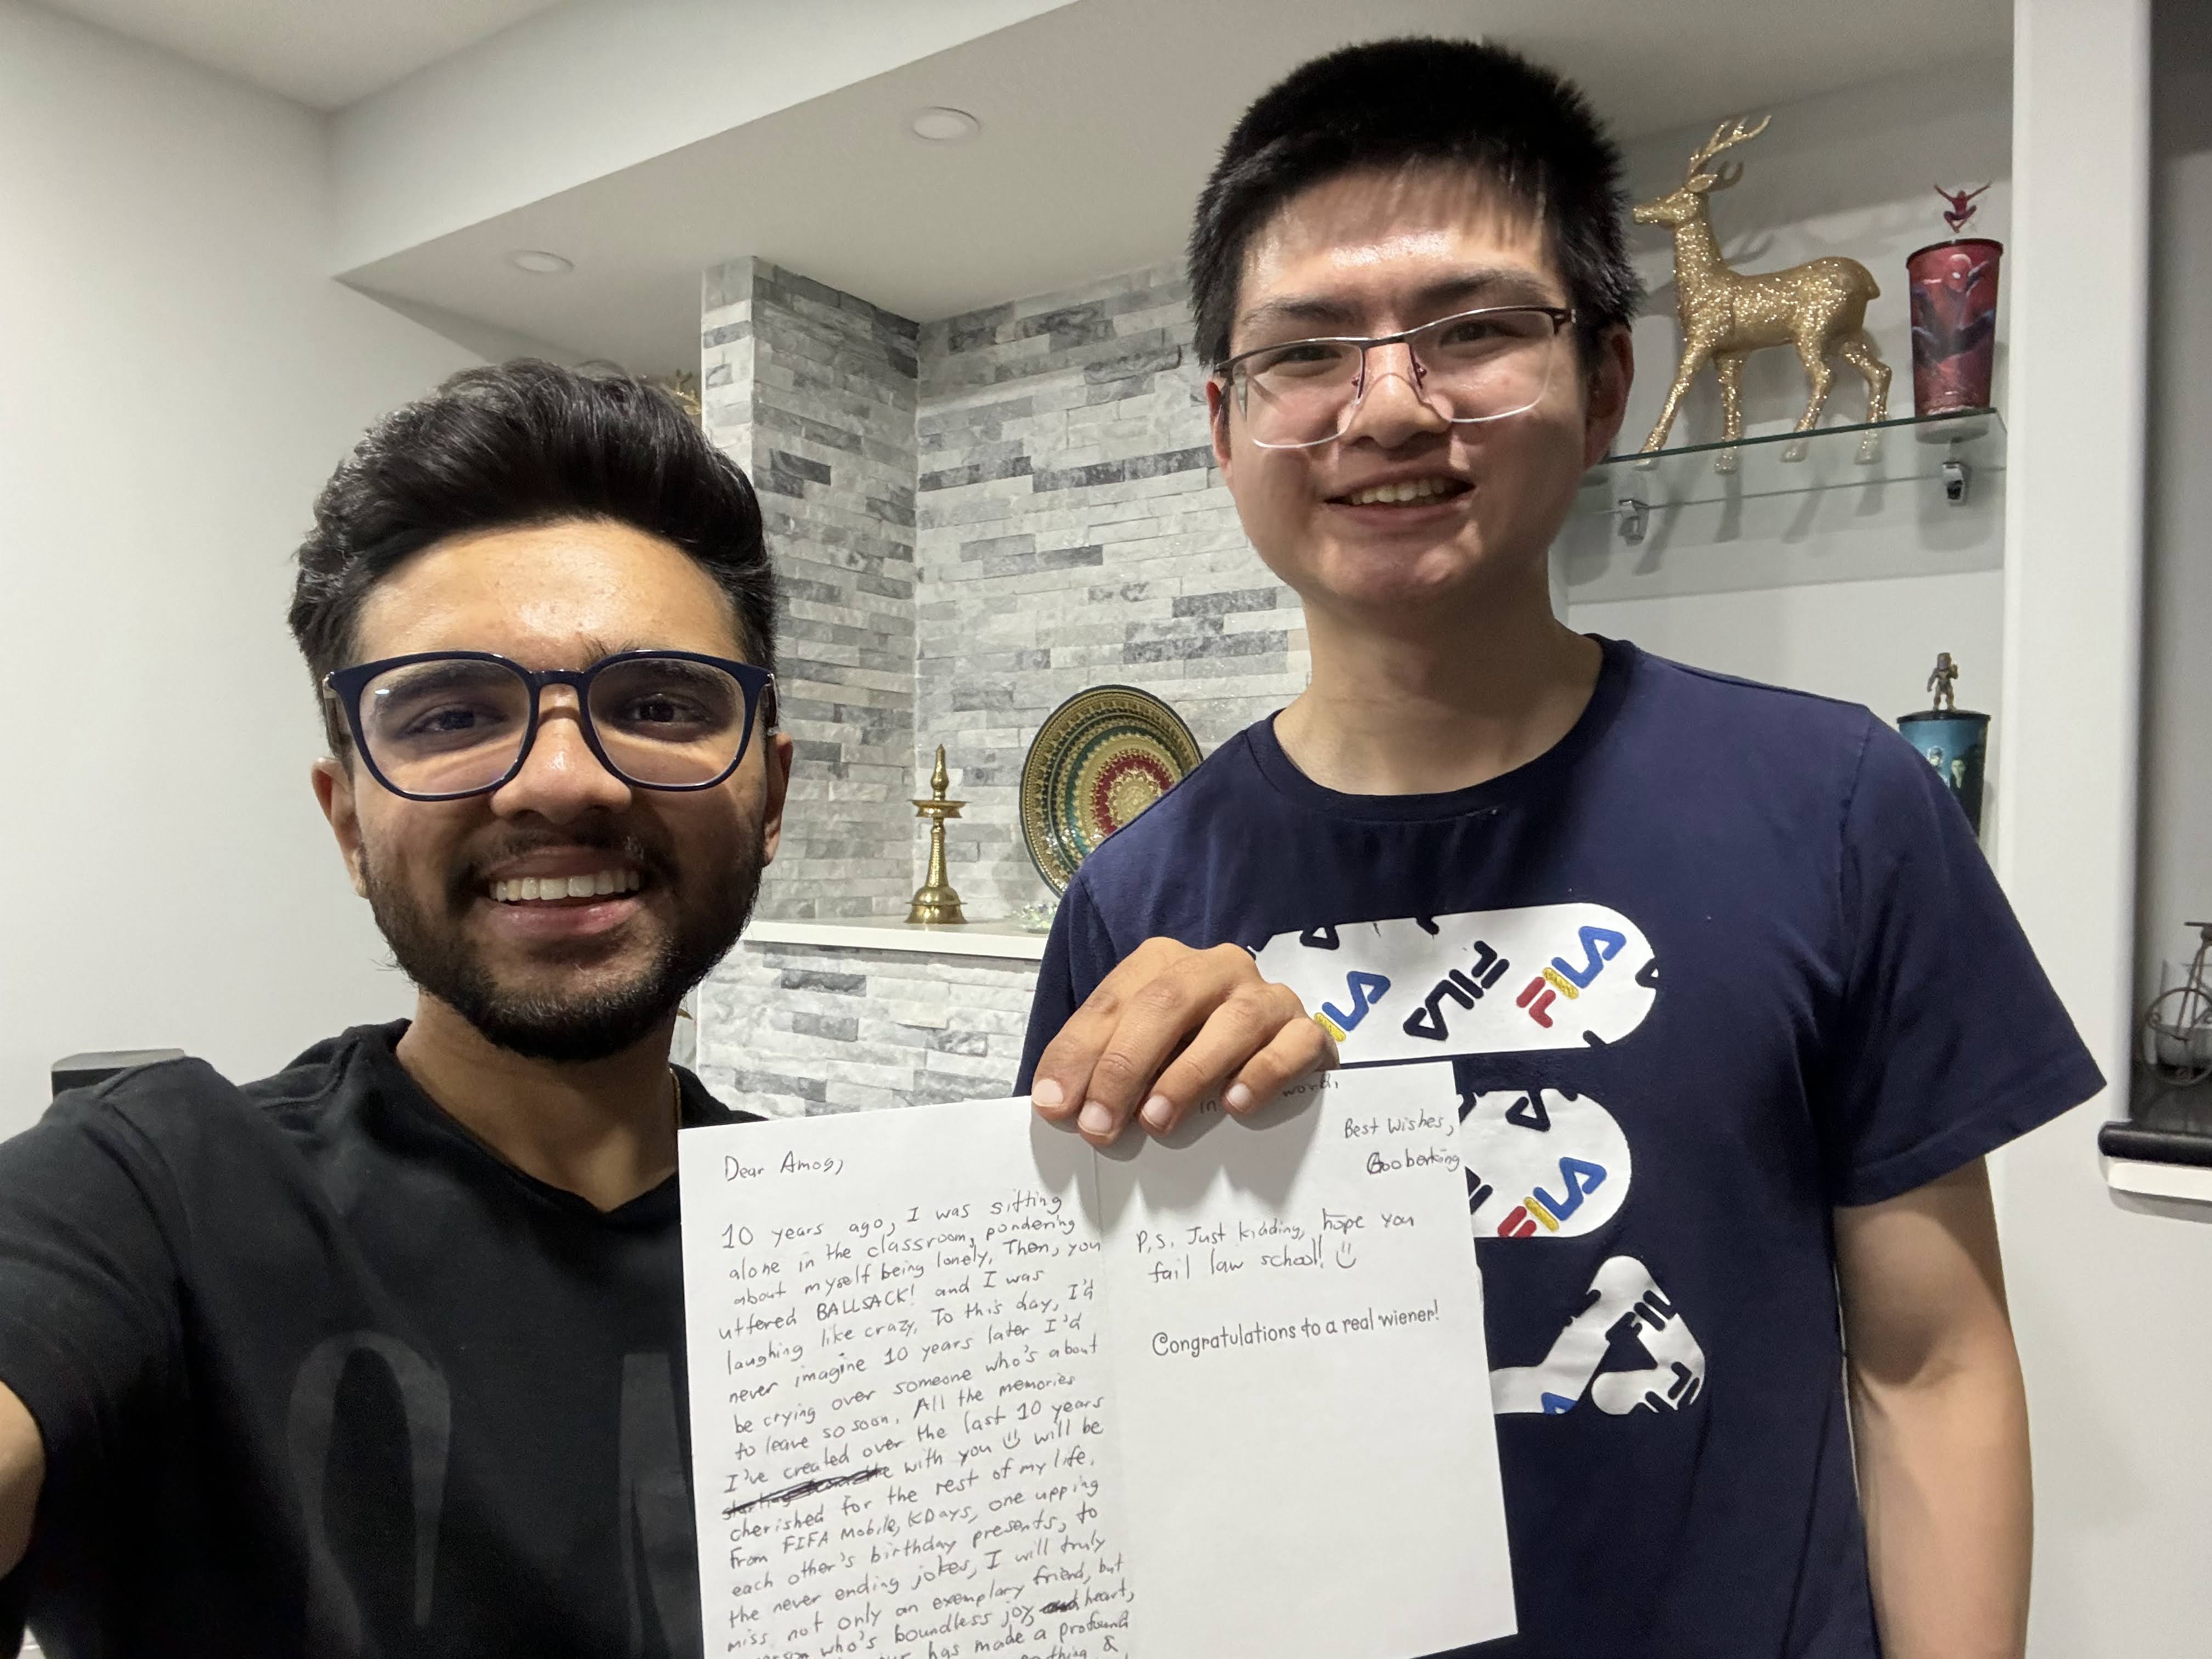 Dear Amog,
10 years ago, I was sitting
alone in the classroom, pondering
about myself being lonely. Then, you
uttered BALLSACK! and I was
laughing like crazy. To this day, I'd
never imagine 10 years later I'd
be crying over someone who's about
to leave so soon. All the memories
I've created over the last 10 years
with you will be
cherished for the rest of my life.
From FIFA Mobile, KDays, one upping
each other's birthday presents, to
the never ending jokes, I will truly
miss not only an exemplary friend, but
who's boundless joy, heart,
has made a profound
&
in world.
Best Wishes,
Gooberking
P.S. Just kidding, hope you
fail law school!
Congratulations to a real wiener!
FILA
FILA
FILA
FILA